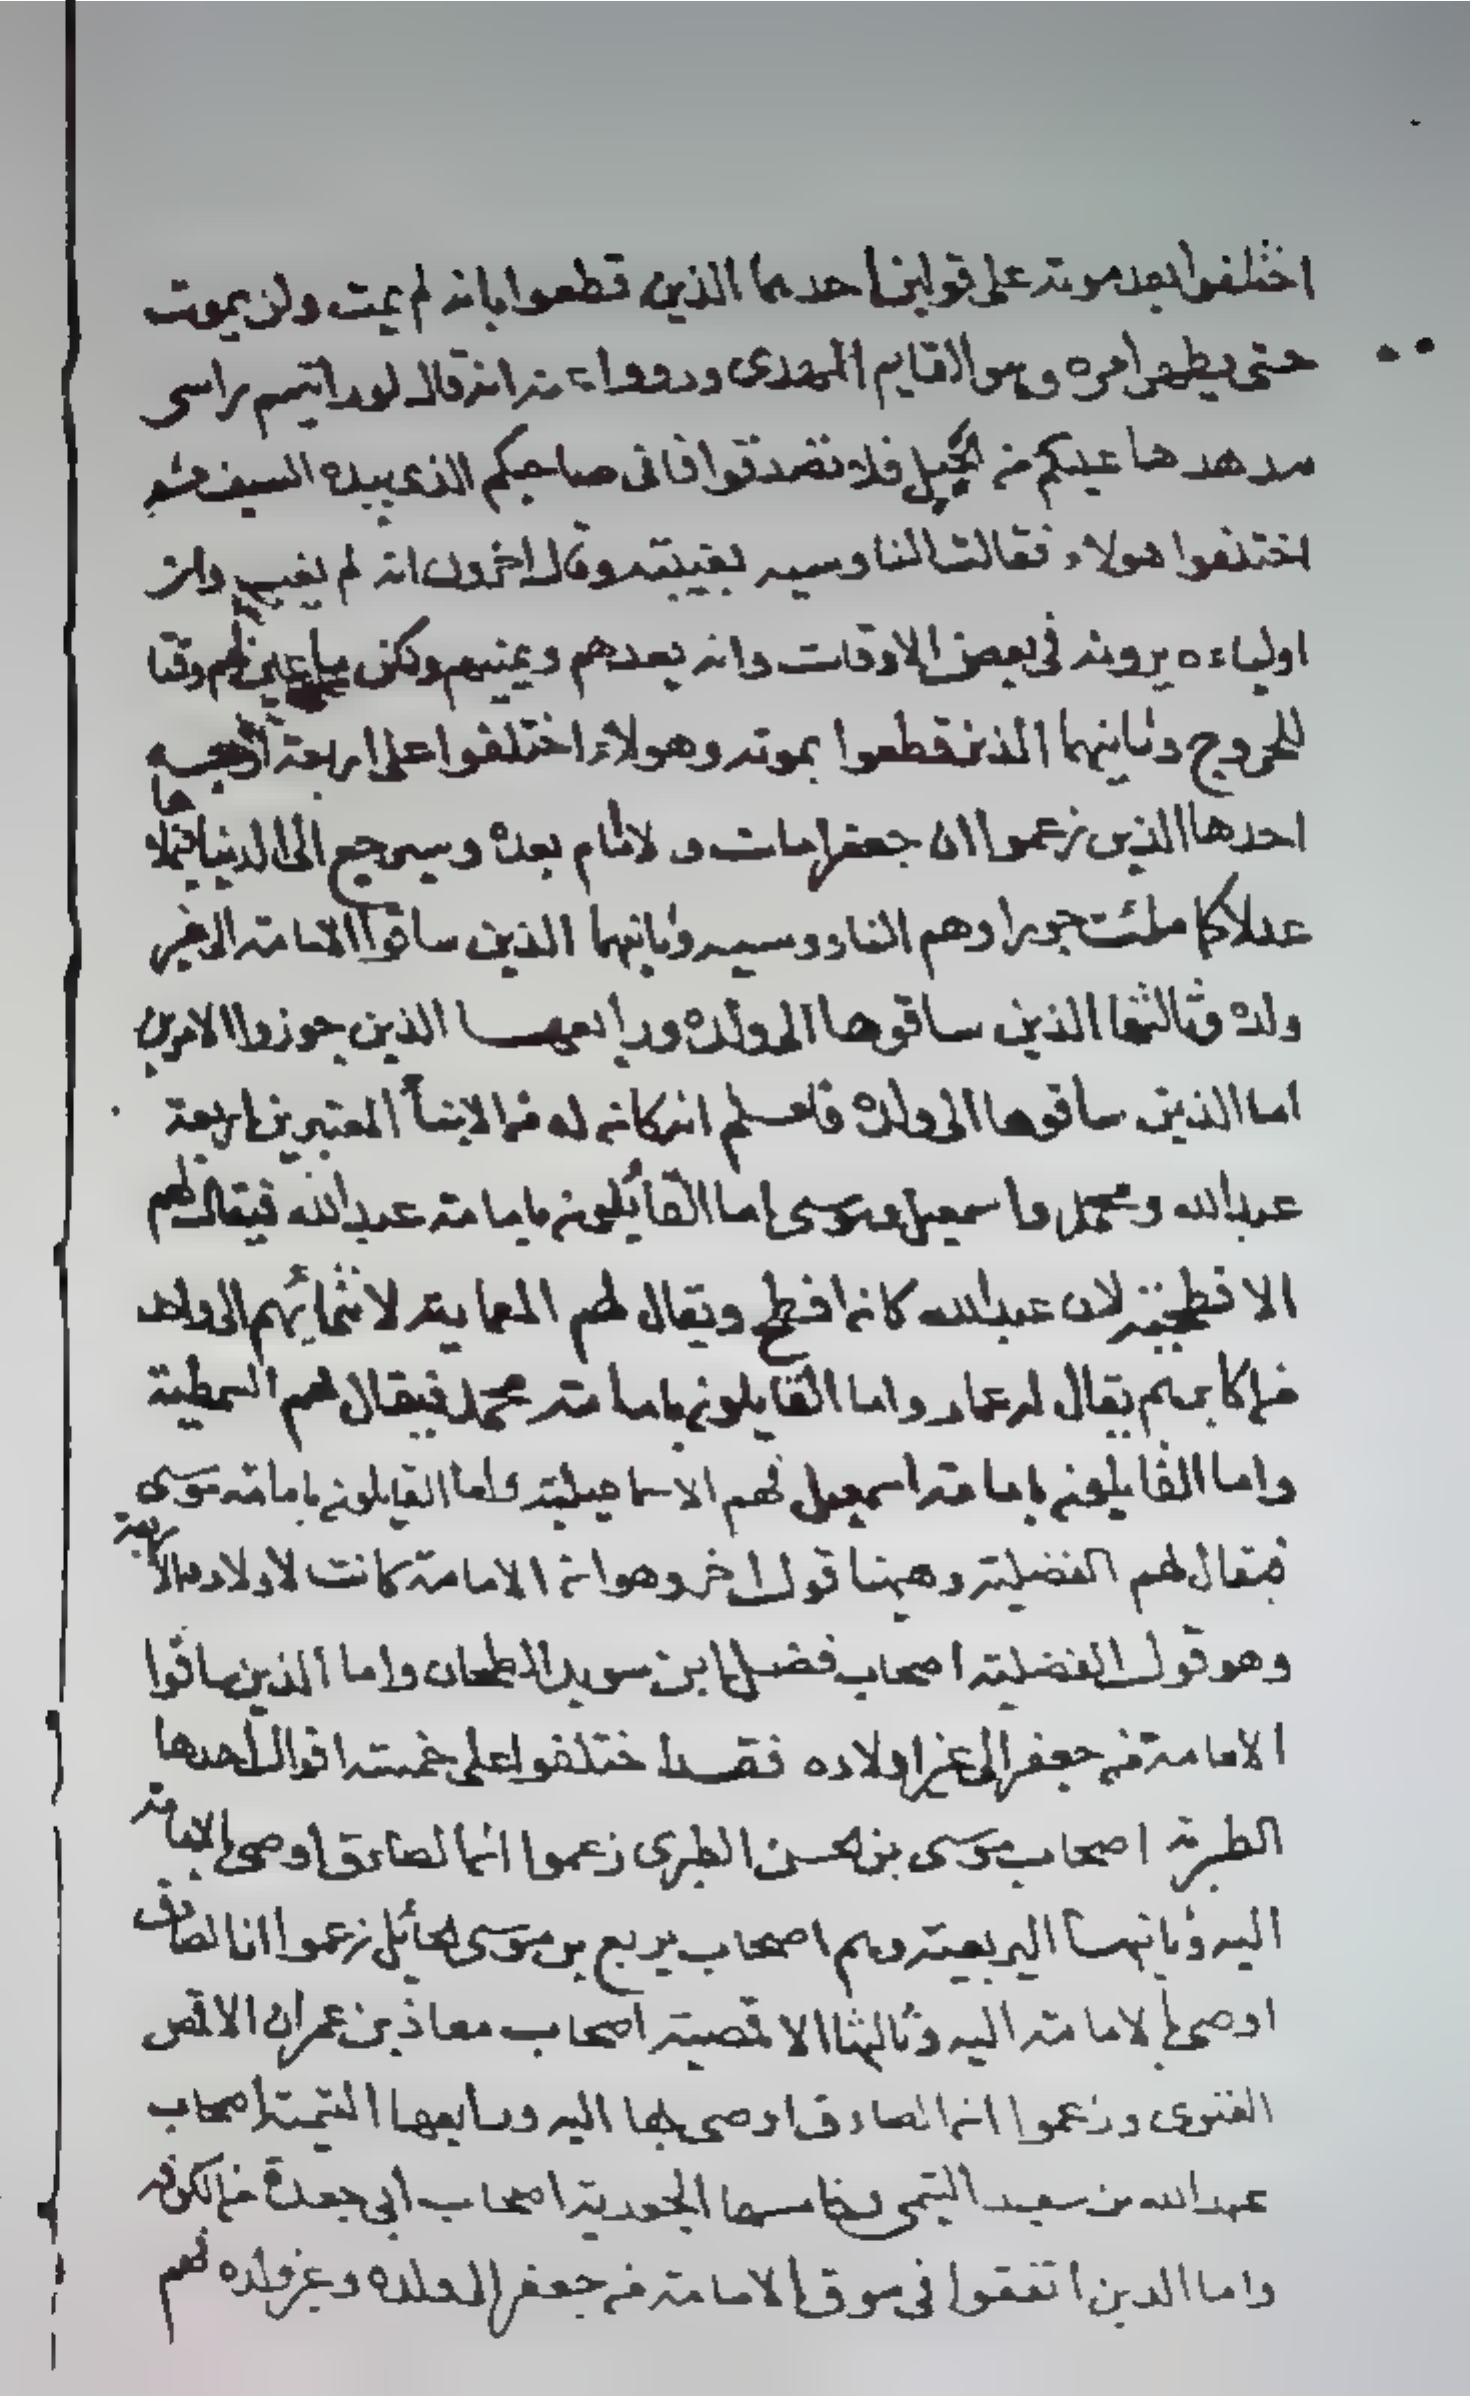 اختلفوا بعد موته على قولين احدهما الذين قطعوا بانه لم يمت ولن يموت
حتى يظهر امره وهو القايم المهدى ورووا عنه انه قال لو رايتم راسى
يدهدها عليكم من الجبل فلا تصدقوا فانى صاحبكم الذى بيده السيف ثم
اختلفوا هولاء فقالت الناوسيه بغيبته وقال اخرون انه لم يغيب وان
اولياءه يرونه فى بعض الاوقات وانه يعدهم ويمنيهم ولكن يعين لهم وقتا
للخروج وثانيهما الذين قطعوا بموته وهولاء اختلفوا على اربعة اوجه
احدها الذين زعموا ان جعفرا مات ولا امام بعده وسيرجع الى الدنيا فيملاها
عدلا كما ملئت جورا وهم الناووسيه وثانيهما الذين ساقوا الامامة الى غير
ولده وثالثها الذين ساقوها الى ولده ورابعهما الذين جوزوا الامرين
اما الذين ساقوها الى ولده فاعلم انه كان له من الابنأ المعتبرين اربعة
عبد الله ومحمد واسمعيل وموسى اما القائلون بامامة عبد الله فيقال لهم
الافطحية لان عبد الله كان افطح ويقال لهم العمايية لانتمائهم الى واحد
من اكابرهم يقال له عمار واما القايلون بامامة محمد فيقال لهم السمطية
واما القايلون بامامة اسمعيل فهم الاسماعيلية واما القايلون بامامة موسى
فيقال لهم الفضلية وههنا قول اخر وهو ان الامامة كانت لاولاده الاربعة
وهو قول الفضلية اصحاب فضل ابن سويد الطحان واما الذين ساقوا
الامامة من جعفر الى غير اولاده فقد اختلفوا على خمسة اقوال احدها
الطبرية اصحاب موسى بن الحسن الطبرى زعموا ان الصادق اوصى الامامة
اليه وثانيهما اليربعية وهم اصحاب يربع بن موسى الحائل زعموا ان الصادق
اوصى بالامامة اليه وثالثها الاقمصية اصحاب معاذ بن عمران الاقمص
الغنوى وزعموا ان الصادق اوصى بها اليه ورابعها التيمية اصحاب
عبد الله بن سعيد التيمى وخامسها الجعدية اصحاب أبى جعدة من الكوفة
واما الدين اتفقوا فى سوق الامامة من جعفر الى ولده وغير ولده فهم